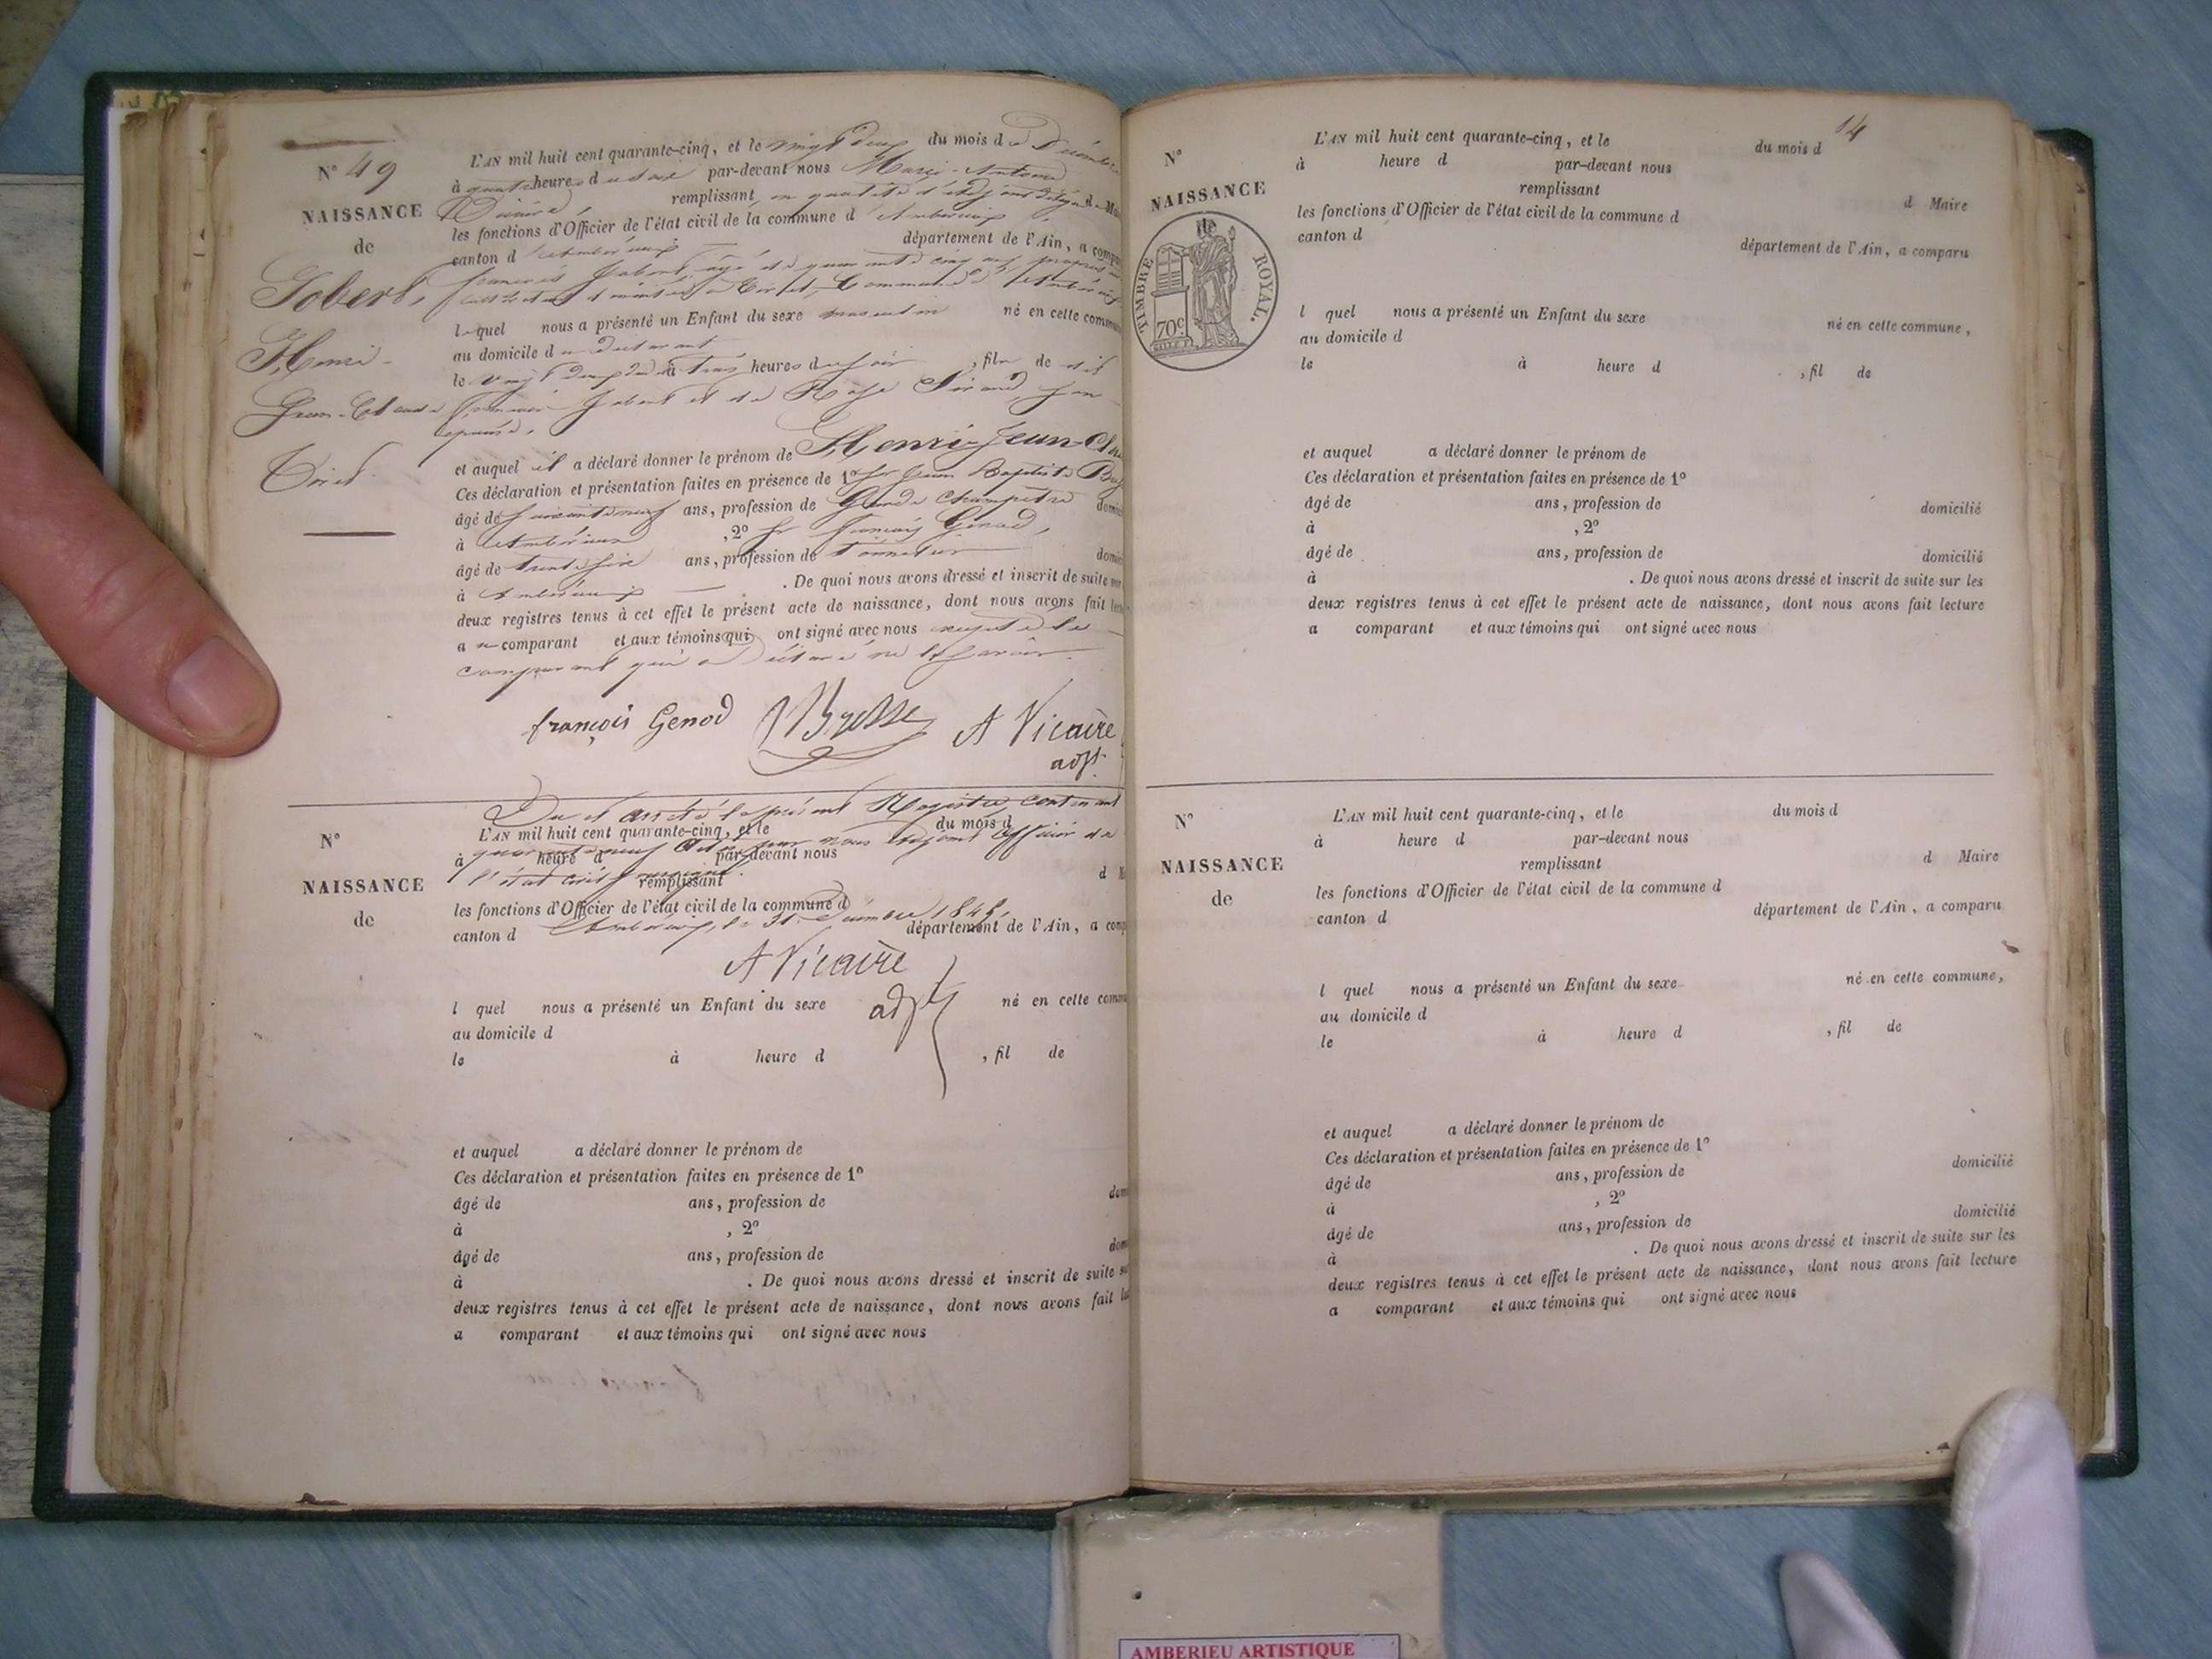 N° 49
NAISSANCE
de
Jobert,
Henri-
Jean-Claude
L'AN mil huit cent quarante-cinq, et le vingt deux du mois de Décembre
à quatre heures du soir par-devant nous Marie-Antoine
Vicaire, remplissant en qualité d'adjoint
les fonctions d'Officier de l'état civil de la commune d'Ambérieux
canton d'Ambérieux département de l'Ain, a comparu
François Jobert, âgé de quarante cinq ans,
lequel nous a présenté un Enfant du sexe masculin né en cette
au domicile du déclarant
le vingt deux à trois heures du soir, fils de
Jobert et de Rose
épouse,
et auquel il a déclaré donner le prénom de Henri-Jean-
Ces déclaration et présentation faites en présence de 1° Sr Jean Baptiste
âgé de soixante neuf ans, profession de Garde champêtre
à Ambérieux, 2° Sr François Genod,
âgé de trente six ans, profession de
à Ambérieux. De quoi nous avons dressé et inscrit de suite
deux registres tenus à cet effet le présent acte de naissance, dont nous avons fait
au comparant et aux témoins qui ont signé avec nous excepté le
comparant qui a déclaré ne le savoir.
françois Genod
A Vicaire
adjt.
Clos et arrêté le présent Registre contenant
quarante neuf actes par nous adjoint officier de
l'état civil
Ambérieux, le 31 Décembre 1845.
A Vicaire
adjt
N°
NAISSANCE
de
L'AN mil huit cent quarante-cinq, et le du mois d
à heure d par-devant nous
remplissant d
les fonctions d'Officier de l'état civil de la commune d
canton d département de l'Ain, a
l quel nous a présenté un Enfant du sexe né en cette
au domicile d
le à heure d , fil de
et auquel a déclaré donner le prénom de
Ces déclaration et présentation faites en présence de 1°
âgé de ans, profession de
à , 2°
âgé de ans, profession de
à . De quoi nous avons dressé et inscrit de suite
deux registres tenus à cet effet le présent acte de naissance, dont nous avons fait
a comparant et aux témoins qui ont signé avec nous
14
N°
NAISSANCE
de
TIMBRE ROYAL.
70c
L'AN mil huit cent quarante-cinq, et le du mois d
à heure d par-devant nous
remplissant d Maire
les fonctions d'Officier de l'état civil de la commune d
canton d département de l'Ain, a comparu
l quel nous a présenté un Enfant du sexe né en cette commune,
au domicile d
le à heure d , fil de
et auquel a déclaré donner le prénom de
Ces déclaration et présentation faites en présence de 1°
âgé de ans, profession de domicilié
à , 2°
âgé de ans, profession de domicilié
à . De quoi nous avons dressé et inscrit de suite sur les
deux registres tenus à cet effet le présent acte de naissance, dont nous avons fait lecture
a comparant et aux témoins qui ont signé avec nous
N°
NAISSANCE
de
L'AN mil huit cent quarante-cinq, et le du mois d
à heure d par-devant nous
remplissant d Maire
les fonctions d'Officier de l'état civil de la commune d
canton d département de l'Ain, a comparu
l quel nous a présenté un Enfant du sexe né en cette commune,
au domicile d
le à heure d , fil de
et auquel a déclaré donner le prénom de
Ces déclaration et présentation faites en présence de 1°
âgé de ans, profession de domicilié
à , 2°
âgé de ans, profession de domicilié
à . De quoi nous avons dressé et inscrit de suite sur les
deux registres tenus à cet effet le présent acte de naissance, dont nous avons fait lecture
a comparant et aux témoins qui ont signé avec nous
AMBERIEU ARTISTIQUE